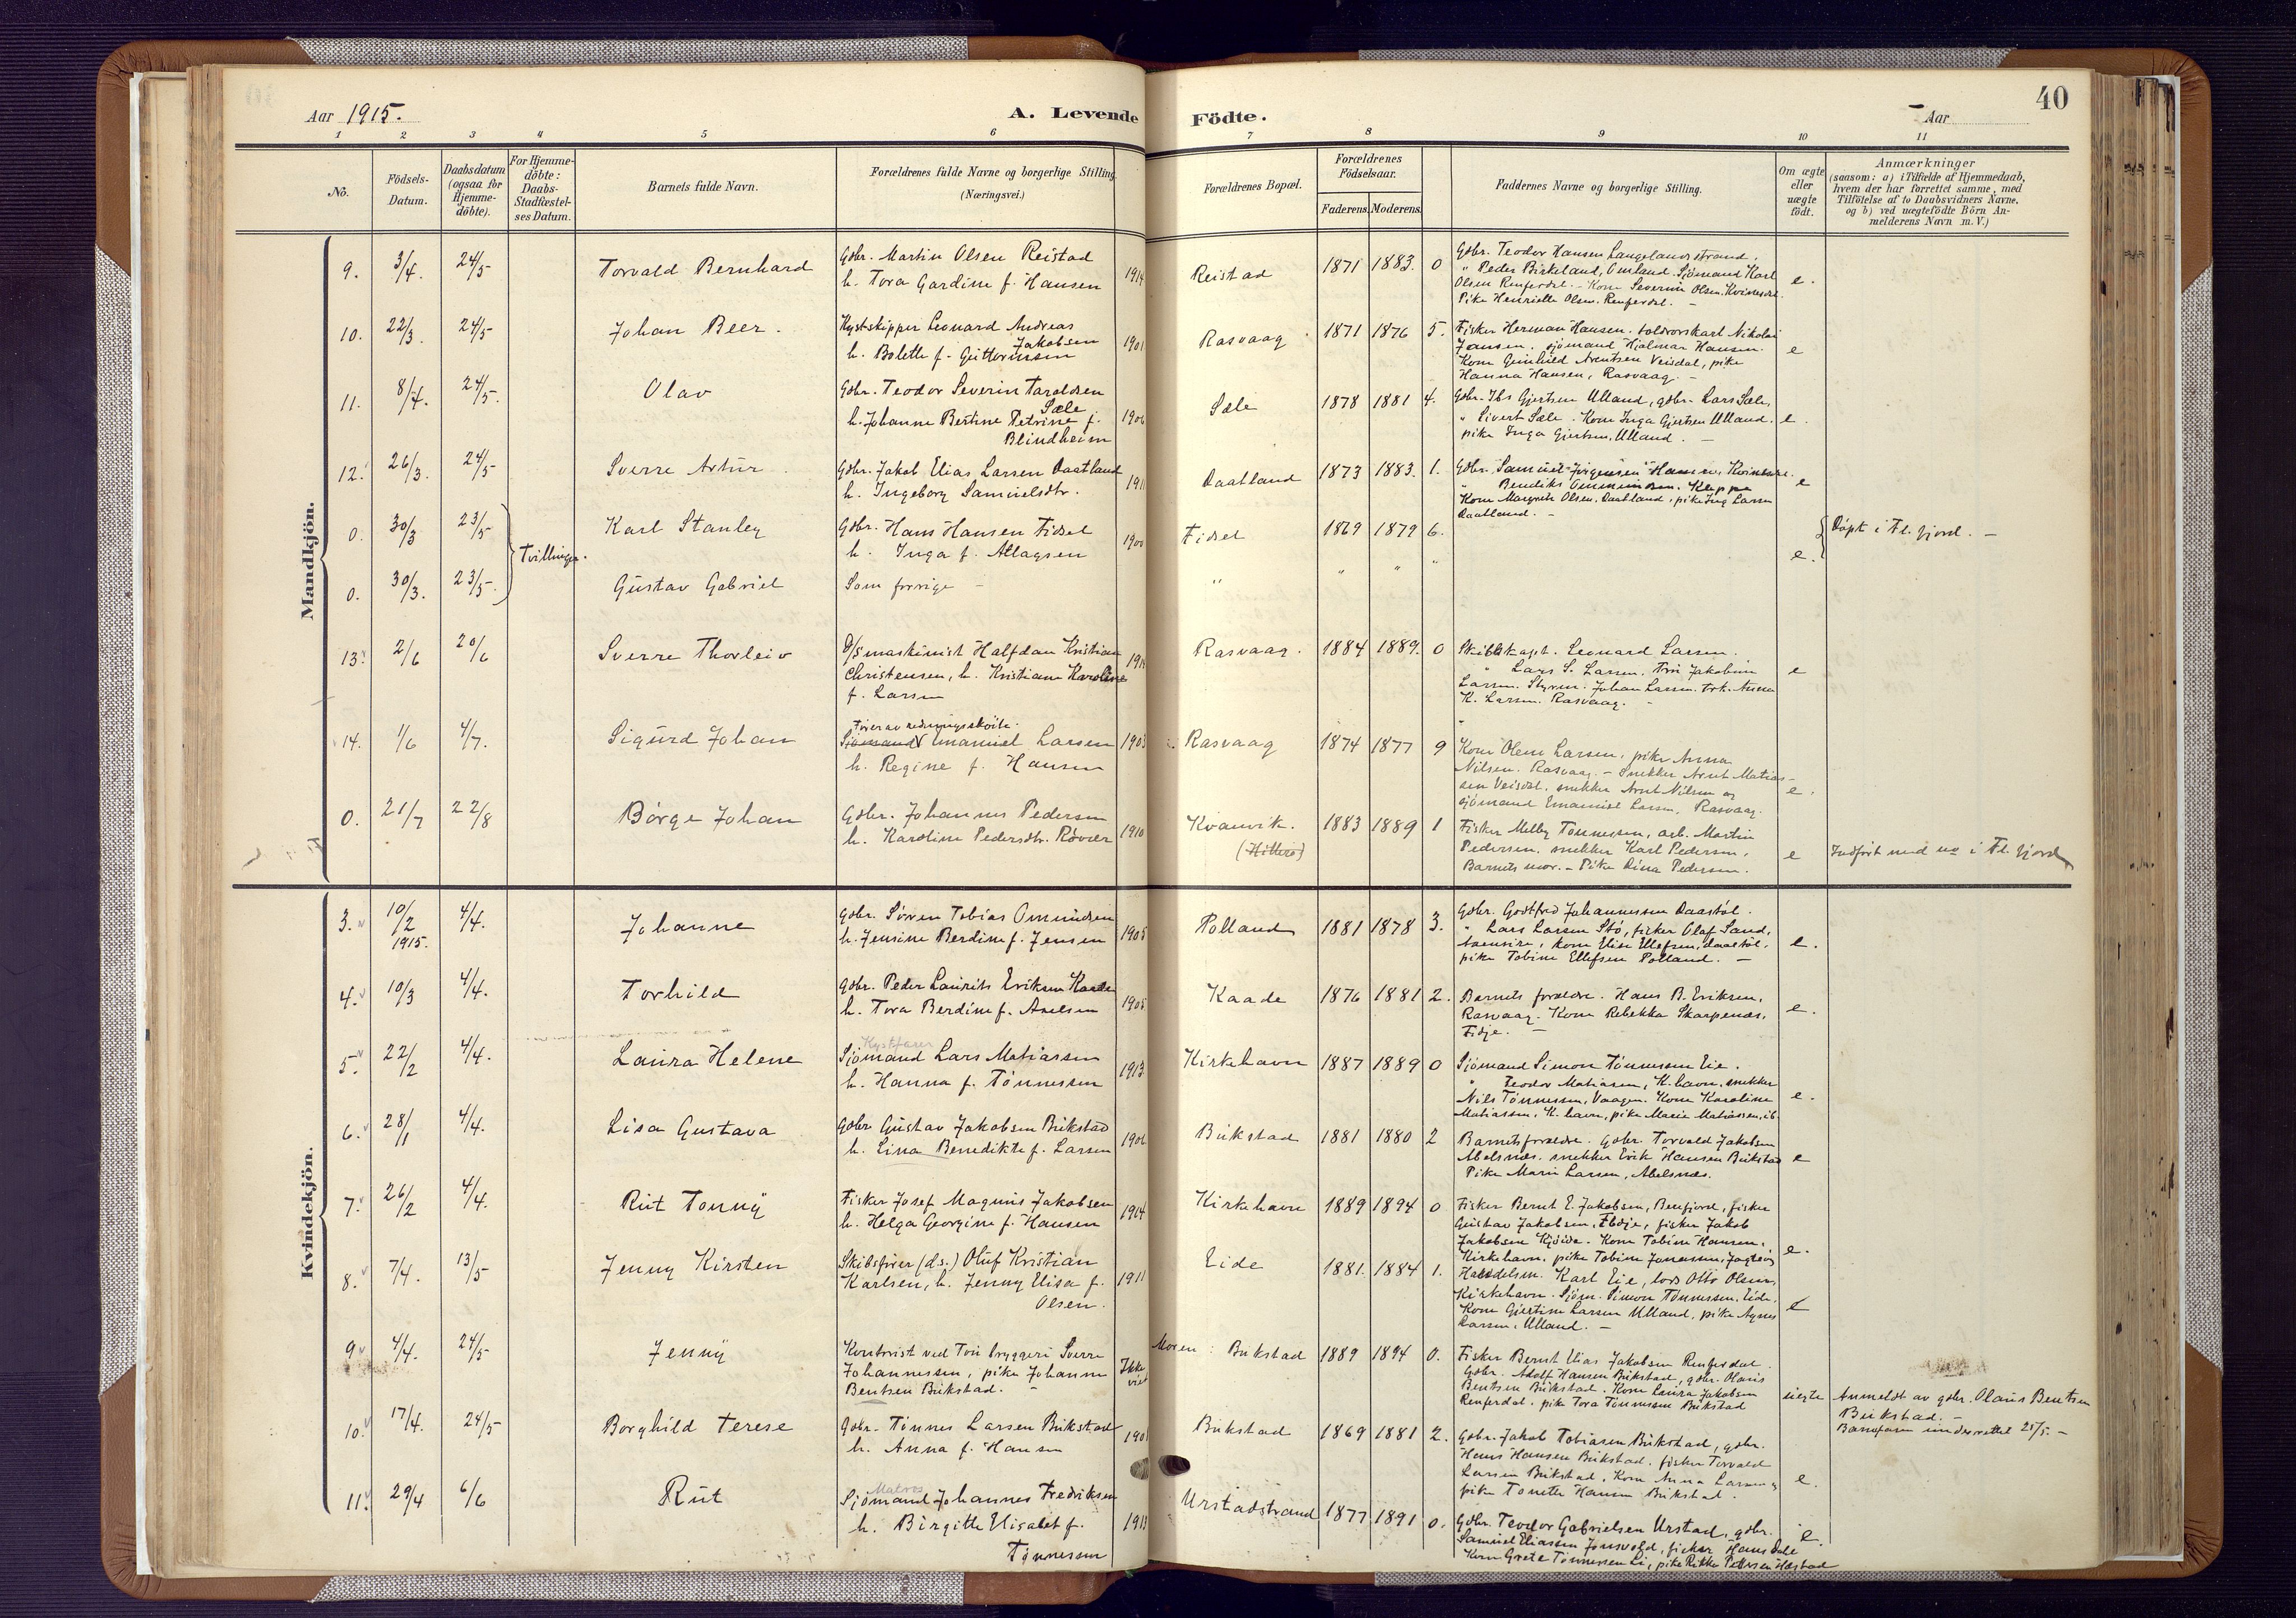 Aar 1915. A. Levende Födte. Aar 40
1 2 3 4 5 6 7 8 9 10 11
No.
Födsels-Datum.
Daabsdatum (ogsaa for Hjemme-döbte).
For Hjemme-döbte: Daabs-Stadfæstel-ses Datum.
Barnets fulde Navn.
Forældrenes fulde Navne og borgerlige Stilling
(Næringsvei.)
Forældrenes Bopæl.
Forældrenes Födselsaar.
Faderens. Moderens.
Faddernes Navne og borgerlige Stilling.
Om ægte eller uægte födt.
Anmærkninger
(saasom: a) i Tilfælde af Hjemmedaab,
hvem der har forrettet samme, med
Tilföielse af to Daabsvidners Navne,
og b) ved uægtefödte Börn An-
melderens Navn m. V.)
Mandkjön.
9. 3/4. 24/5 Torvald Bernhard
Gdbr. Martin Olsen Reistad
h. Tora Gardine f. Hansen 1914
Reistad 1871 1883. 0
Gdbr. Teodor Hansen Langelandsstrand.
" Peder Birkeland, Omland. Sjömand Karl
Olsen Renferdal. - Kone Severine Olsen. Kvinesdal.
Pike Henriette Olsen. Renferdal. -
e.
10. 22/3. 24/5 Johan Beer.
Kystskipper Leonard Andreas
Jakobsen
h. Bolette f. Guttormsen 1901
Rasvaag 1871 1876 5.
Fisker Herman Hansen. toldrorskarl Nikolai
Jansen. sjömand Hjalmar Hansen.
Kone Gunhild Arentsen Veisdal, pike
Hanna Hansen, Rasvaag. -
e
11. 8/4. 24/5. Olav
Gdbr. Teodor Severin Taraldsen
Sæle
h. Johanne Bertine Petrine f.
Blindheim 1906
Sæle 1878 1881 4.
Gdbr. Ibs Gjertsen Ulland, gdbr. Lars Sæle,
" Sivert Sæle. Kone Inga Gjertsen Ulland.
pike Inga Gjertsen, Ulland. -
e.
12. 26/3. 24/5 Sverre Artur.
Gdbr. Jakob Elias Larsen Daatland
h. Ingeborg Samuelsdtr. 1911
Daatland 1873 1883. 1.
Gdbr. Samuel Jörgensen Hamre, Kvinesdal.
" Bendiks Ommundsen. Kleppe
Kone Margrete Olsen, Daatland, pike Ing Larsen
Daatland. -
e
0. 30/3 23/5 Karl Stanley
Gdbr. Hans Hansen Fidsel
h. Inga f. Atlagsen 1900
Fidsel 1869 1879 6.
Tvillinger.
e.
Döpt i Fl. fjord. -
0. 30/3. 23/5. Gustav Gabriel
Som forrige -
" " " "
13. 2/6 20/6 Sverre Thorleiv
D/S maskinist Halfdan Kristian
Christensen, h. Kristiane Karoline
f. Larsen
Rasvaag. 1884 1889. 0
Skibskapt. Leonard Larsen.
" Lars S. Larsen. Fru Jakobine
Larsen. Styrm. Johan Larsen. frk. Anna
K. Larsen. Rasvaag. -
e
14. 1/6 4/7. Sigurd Johan
Förer av redningsskoite.
Sjömand Emanuel Larsen
h. Regine f. Hansen 1903
Rasvaag 1874 1877 9
Kone Olene Larsen, pike Anna
Nilsen. Rasvaag. - Snekker Arnt Matias-
sen Veisdal. snekker Arnt Nilsen og
sjömand Emanuel Larsen, Rasvaag.
e.
0. 21/7 22/8 Börge Johan
Gdbr. Johannes Pedersen
h. Karoline Pedersdtr. Rövær 1910
Kvanvik.
(Hitterö) 1883 1889 1
Fisker Melby Tönnessen, arb. Martin
Pedersen, snekker Karl Pedersen,
Barnets mor. - Pike Dina Pedersen.
e
Indfört med no i Fl. fjord
Kvindekjön.
3. 10/2 1915. 4/4. Johanne
Gdbr. Sören Tobias Omundsen
h. Jensine Berdine f. Jensen 1905
Polland 1881 1878 3.
Gdbr. Godtfred Johannessen Daastöl.
" Lars Larsen Stö, fisker Olaf Sand,
kone Elise Ellefsen, daastöl.
pike Tobine Ellefsen Polland. -
e.
4. 10/3 4/4. Torhild
Gdbr. Peder Laurits Eriksen Kaade
h. Tora Berdine f. Axelsen 1905
Kaade 1876 1881 2.
Barnets forældre. Hans B. Eriksen,
Rasvaag. Kone Rebekka Skarpenæs,
Fidje. -
e.
5. 22/2 4/4. Laura Helene
Kystfarer
Sjömand Lars Matiassen
h. Hanna f. Tönnessen 1913
Kirkehavn 1887 1889 0
Sjömand Simon Tönnessen Eie.
" Teodor Matiassen, K.havn, snekker
Nils Tönnessen, Vaagen. Kone Karoline
Matiassen, K.havn, pike Marie Matiassen, ib.
e.
6. 28/1 4/4. Lisa Gustava
Gdbr Gustav Jakobsen Bukstad
h. Lina Benedikte f. Larsen 1906
Bukstad 1881 1880 2
Barnets forældre. Gdbr. Torvald Jakobsen
Abelsnæs. snekker Erik Hansen Bukstad
Pike Marie Larsen, Abelsnæs.
e
7. 26/2 4/4. Rut Tonny
Fisker Josef Magnus Jakobsen
h. Helga Georgine f. Hansen 1914
Kirkehavn 1889 1894 0
Fisker Bernt E. Jakobsen, Renfjord, fisker
Gustav Jakobsen, Fidje, fisker Jakob
Jakobsen Kjöide. Kone Tobine Hansen,
Kirkehavn. pike Tobine Jonassen,
e.
8. 7/4. 13/5 Jenny Kirsten
Skibsförer (d.s.) Oluf Kristian
Karlsen, h. Jenny Elisa f.
Olsen. 1911
Eide 1881. 1884 1.
Handelsm. Karl Eie, lods Otto Olsen,
Kirkehavn. Sjöm. Simon Tönnessen, Eide.
Kone Gjertine Larsen Ulland, pike Agnes
Larsen, Ulland. -
e
9 4/4. 24/5 Jenny
Kontorist ved Tou bryggeri Sverre
Johannessen, pike Johanne
Bentsen Bukstad. - Ikke viet
Moren: Bukstad 1889 1894 0.
Fisker Bernt Elias Jakobsen Renferdal.
Gdbr. Adolf Hansen Bukstad, gdbr. Olaus
Bentsen Bukstad. Kone Laura Jakobsen
Renferdal. pike Tora Tönnessen Bukstad
uegte
Anmeldt av gdbr. Olaus Bentsen
Bukstad. -
Barnefaren underrettet 25/5. -
10. 17/4. 24/5 Borghild Terese
Gdbr. Tönnes Larsen Bukstad
h. Anna f. Hansen
Bukstad 1869 1881 2.
Gdbr. Jakob Tobiasen Bukstad, gdbr.
Hans Hansen Bukstad. fisker Torvald
Larsen Bukstad. Kone Anna Larsen og
pike Tonette Hansen Bukstad.
e.
11. 29/4 6/6 Rut
Matros
Sjömand Johannes Fredriksen
h. Birgitte Elisabet f.
Tönnessen 1913
Urstadstrand 1877 1891 0.
Gdbr. Teodor Gabrielsen Urstad, gdbr.
Samuel Eliassen Jonsvold, fisker Hans Dale
Kone Grete Tönnessen Li, pike Rikke Pettersen Hæstad
e.